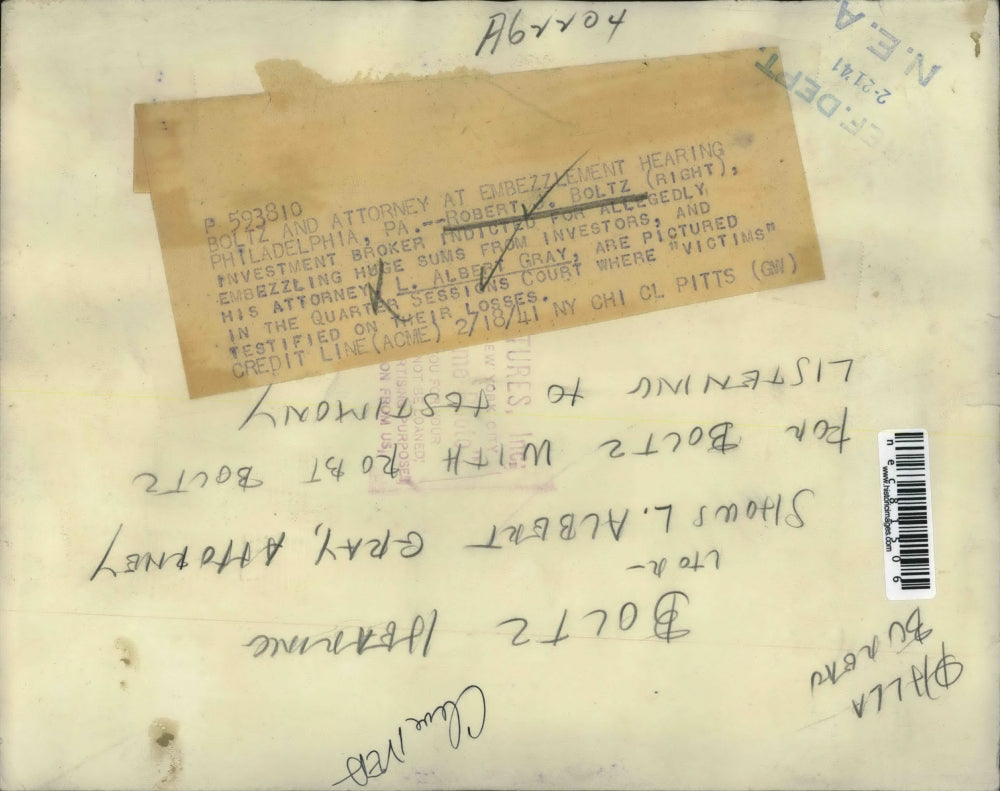 A62204
N.E.A.
REF. DEPT.
2-21-41
P 593810
BOLTZ AND ATTORNEY AT EMBEZZLEMENT HEARING
PHILADELPHIA, PA.--ROBERT J. BOLTZ (RIGHT),
INVESTMENT BROKER INDICTED FOR ALLEGEDLY
EMBEZZLING HUGE SUMS FROM INVESTORS, AND
HIS ATTORNEY, L. ALBERT GRAY, ARE PICTURED
IN THE QUARTER SESSIONS COURT WHERE "VICTIMS"
TESTIFIED ON THEIR LOSSES.
CREDIT LINE (ACME) 2/18/41 NY CHI CL PITTS (GW)
BOLTZ HEARING
L to R-
SHOWS L. ALBERT GRAY, ATTORNEY
FOR BOLTZ WITH ROBT BOLTZ
LISTENING TO TESTIMONY
TURES, Inc.
EW YORK CITY
YOU FOR YOUR
NOT BE LOANED,
TISING PURPOSES
ON FROM US.
nec81506
www.historicimages.com
PHILLA
BUREAU